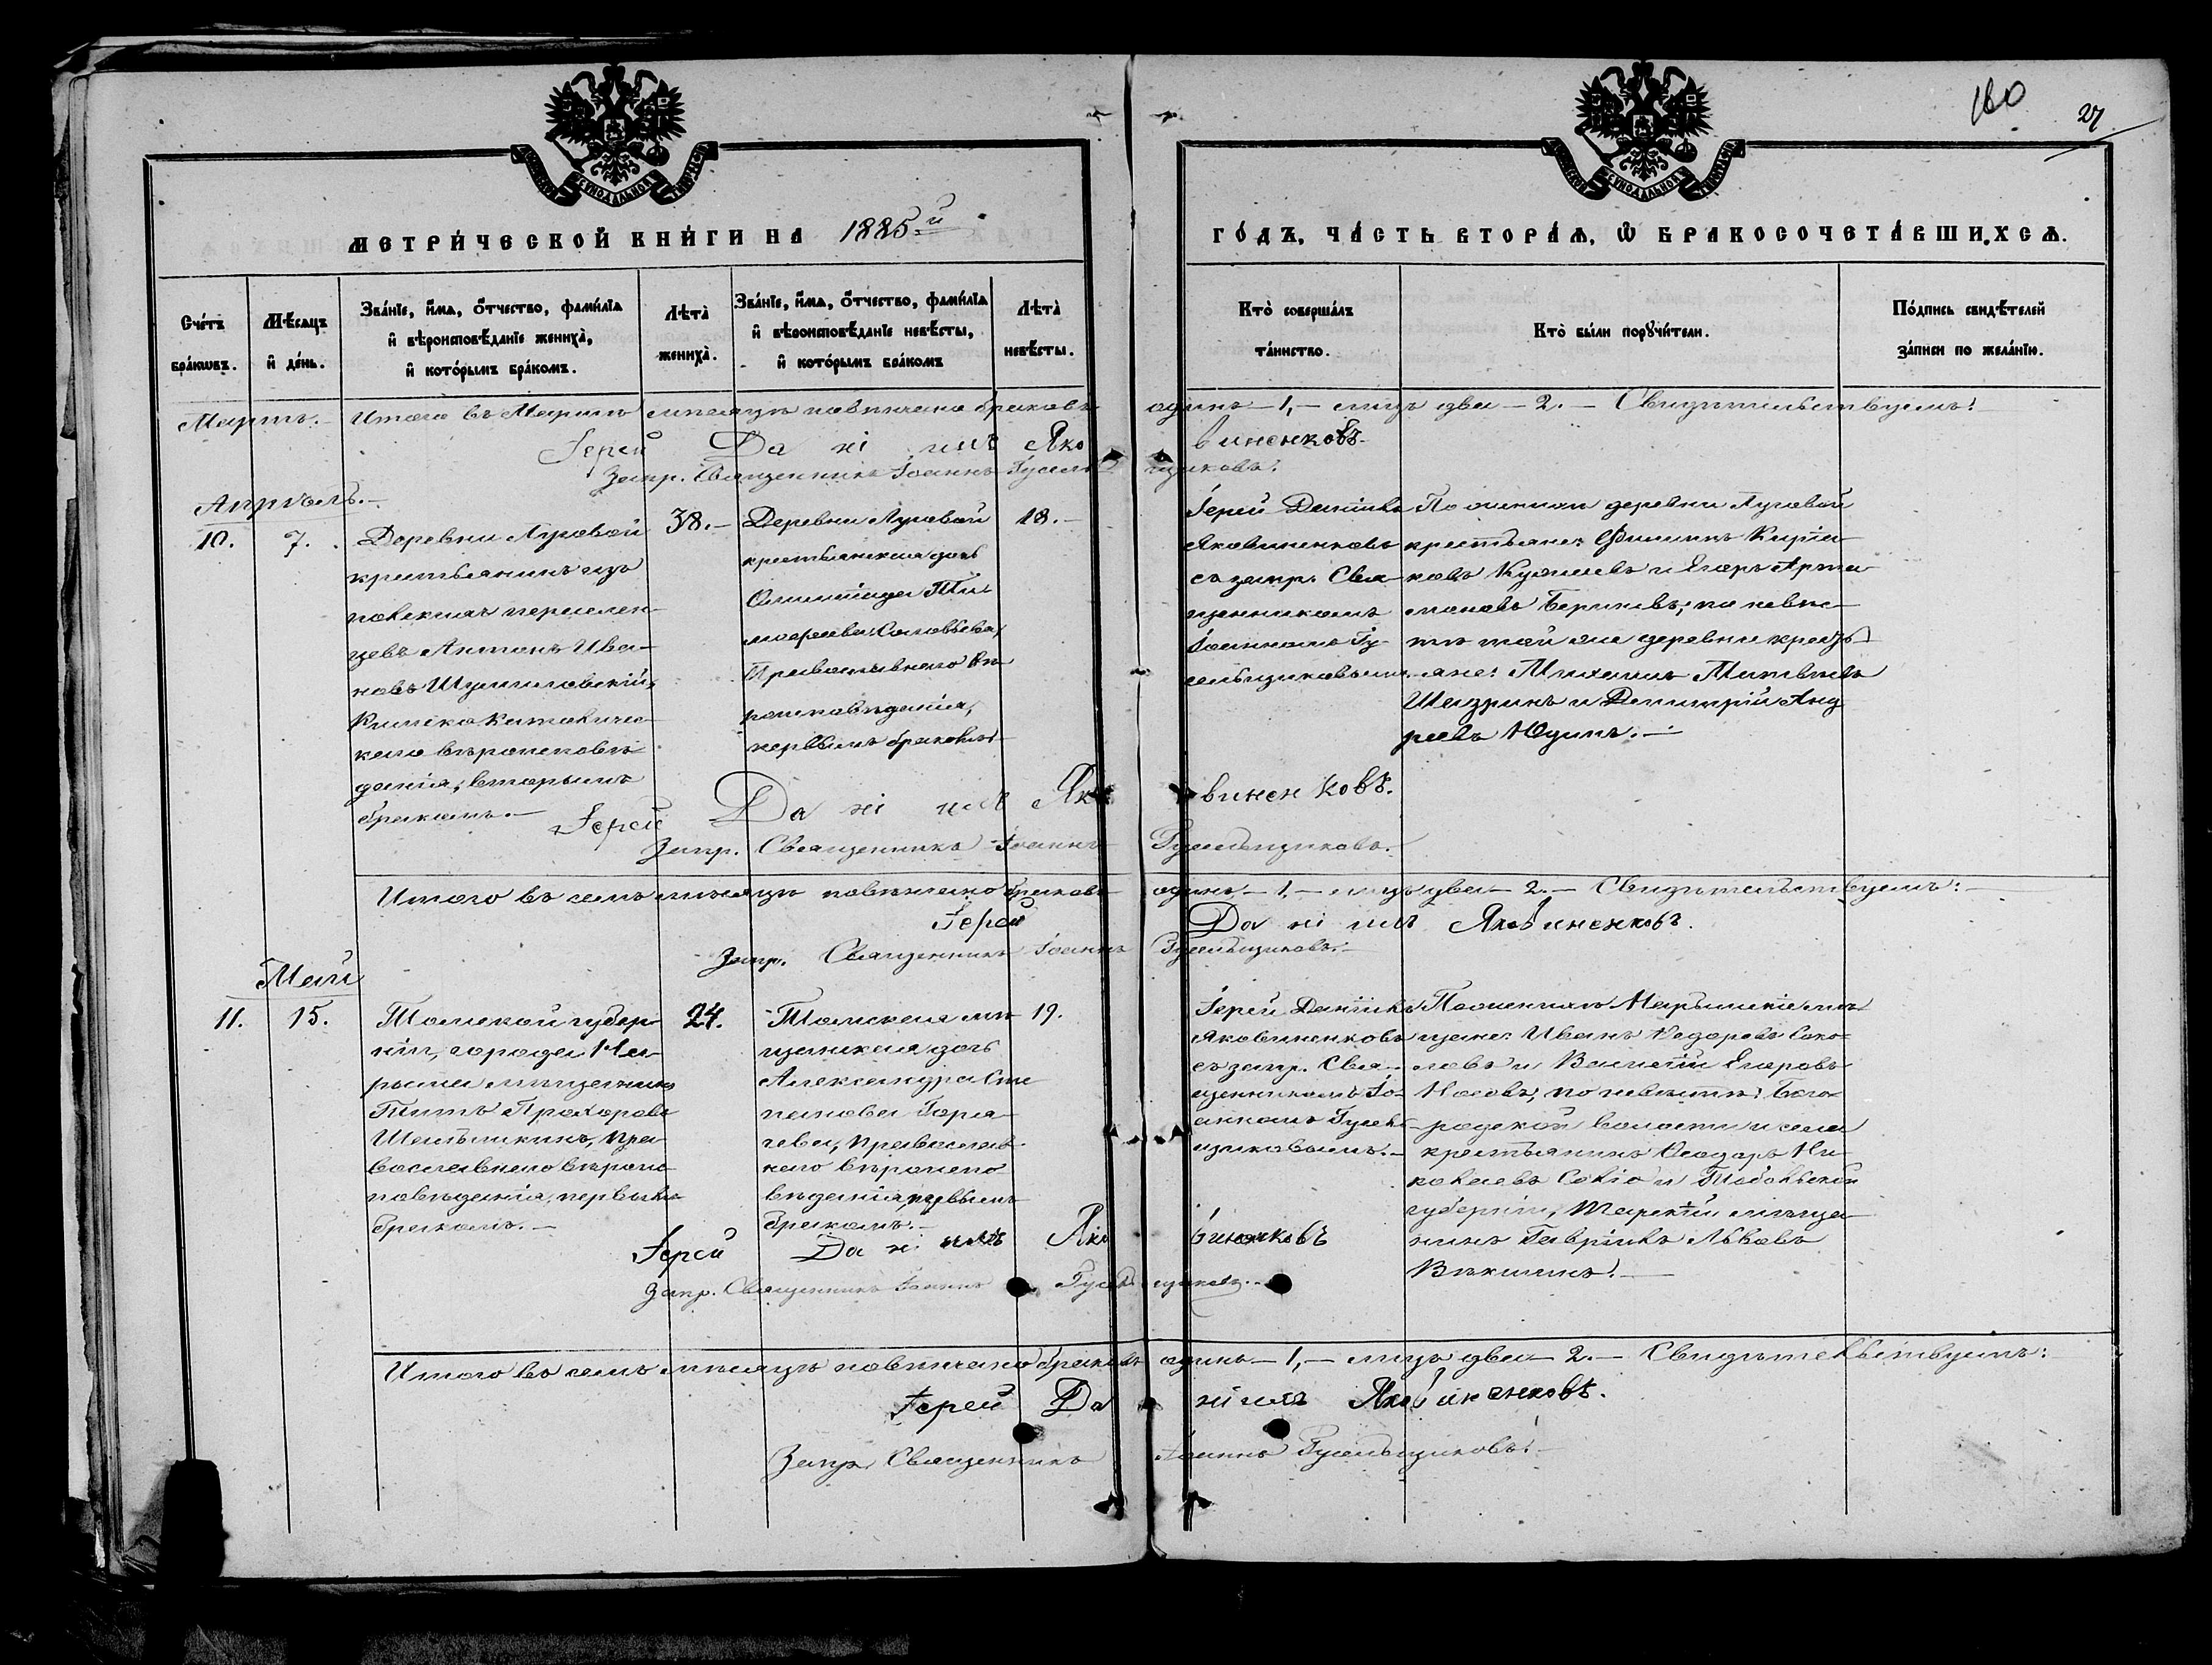 180
27
МЕТРИ́ЧЕСКОЙ КНИ́ГИ НА 1885.й
ГО́ДЪ, ЧА́СТЬ ВТОРА́Ѧ, Ѡ БРАКОСОЧЕТА́ВШИ,ХСѦ.
Сче́тъ
бра́кѡвъ.
Мѣ́сѧцъ
и де́нь.
Зва́нїе, и́мѧ, о́тчество, фами́лїѧ
и вѣроисповѣ́данїе жениха̀,
и кото́рымъ бра́комъ.
Лѣта̀
жениха̀.
Зва́нїе, и́мѧ, о́тчество, фами́лїѧ
и вѣроисповѣ́данїе невѣ́сты,
и кото́рымъ бра́комъ
Лѣта̀
невѣ́сты.
Кто̀ соверша́лъ
та́инство.
Кто̀ бы́ли порꙋчи́тели.
По́дпись свидѣ́телей
за́писи по жела́нїю.
Мартъ.- Итого въ Мартѣ мѣсяцѣ повѣнчано браковъ одинъ - 1, - лицъ два - 2. - Свидѣтельствуемъ:
Іерей Даніилъ Яковиненковъ.
Запр. Священникъ Іоаннъ Гусельщиковъ.
Апрѣль.-
10.
7.
Деревни Луговой
крестьянинъ изъ
польскихъ переселен-
цевъ Антонъ Ива-
новъ Шумиловскій,
Римско Католичес-
каго вѣроисповѣ
данія, вторымъ
бракомъ.-
38.-
Деревни Луговой
крестьянская дочь
Олимпіада Ти-
мофеева Соловьева,
Православнаго вѣ-
роисповѣданія,
первымъ бракомъ
18.-
Іерей Даніилъ
Яковиненковъ
съ запр. Свя-
щенникомъ
Іоанномъ Гу-
сельщиковымъ.
По женихѣ деревни Луговой
крестьяне: Филиппъ Кирия-
ковъ и Егоръ Арта-
моновъ; по невѣс-
тѣ той же деревни кресть-
яне: Михаилъ Матвѣевъ
Шадринъ и Димитрій Анд
реевъ Юдинъ.-
Іерей Даніилъ Яковиненковъ.
Запр. Священникъ Іоаннъ Гусельщиковъ.
Итого въ семъ мѣсяцѣ повѣнчано браковъ одинъ - 1, - лицъ два - 2. - Свидѣтельствуемъ:-
Іерей Даніилъ Яковиненковъ.
Запр. Священникъ Іоаннъ Гусельщиковъ.-
Май
11.
15.
Томской губер-
ніи, города На-
рыма мѣщанинъ
Титъ Прохоровъ
пра-
вославнаго вѣроис-
повѣданія, первымъ
бракомъ.-
24.
Томская мѣ-
щанская дочь
Александра Сте
панова Горя-
чева, православ-
наго вѣроиспо
вѣданія, первымъ
бракомъ.-
19.
Іерей Даніилъ
Яковиненковъ
съ запр. Свя-
щенникомъ Іо-
анномъ Гусель-
щиковымъ.-
По женихѣ Нарымскіе мѣ-
щане: Иванъ Ѳедоровъ Соко-
ловъ и Василій Егоровъ
Носовъ; по невѣстѣ: Бого-
родской волости и села
крестьянинъ Ѳеодоръ Ни-
колаевъ и Тобольской
губерніи, Тарскій мѣща-
нинъ Гавріилъ Львовъ
Іерей Даніилъ Яковиненковъ
Запр. Священникъ Іоаннъ Гусельщиковъ.-
Итого въ семъ мѣсяцѣ повѣнчано браковъ одинъ - 1, - лицъ два - 2. - Свидѣтельствуемъ:
Іерей Даніилъ Яковиненковъ.
Запр. Священникъ Іоаннъ Гусельщиковъ.-